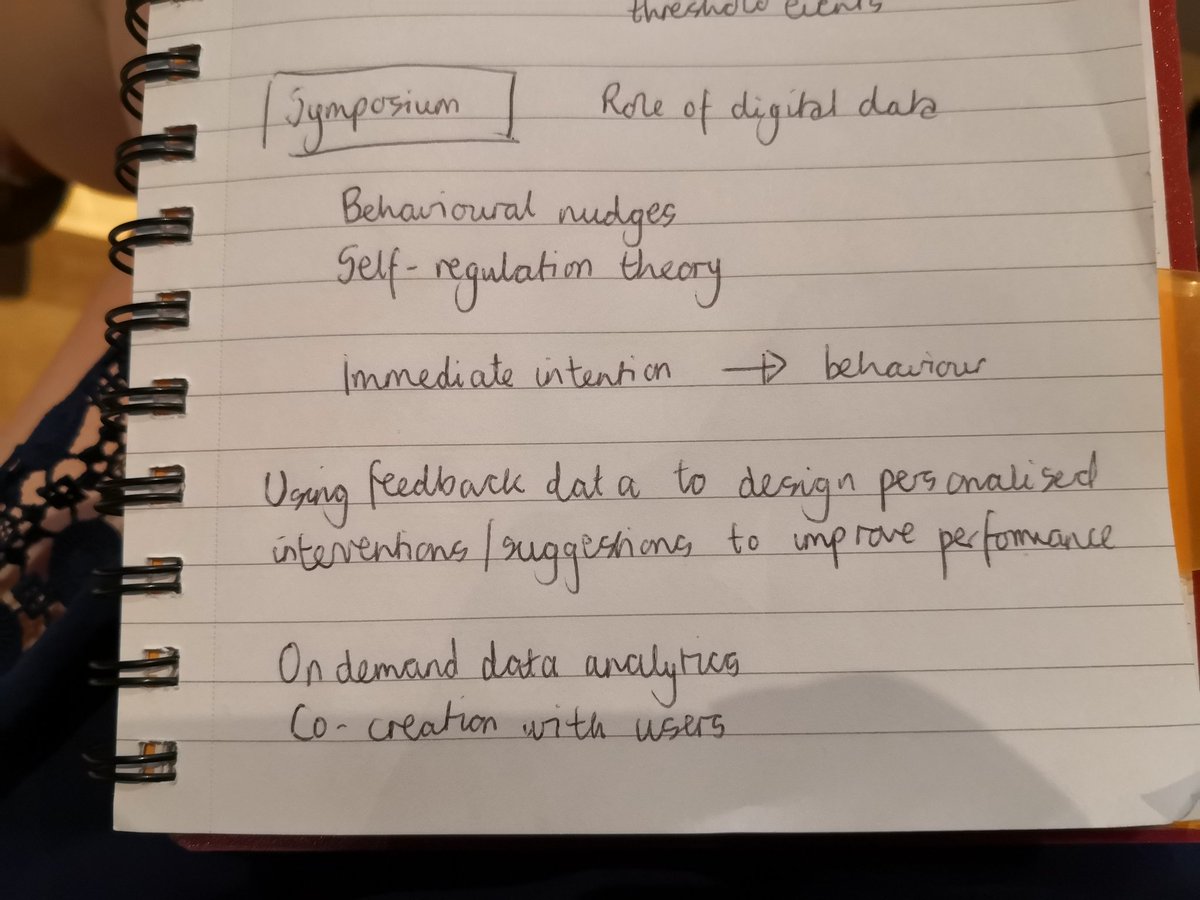 threshold
Symposium Role of digital data
Behavioural nudges
Self-regulation theory
Immediate intention → behaviour
Using feedback data to design personalised
interventions/suggestions to improve performance
On demand data analytics
Co-creation with users